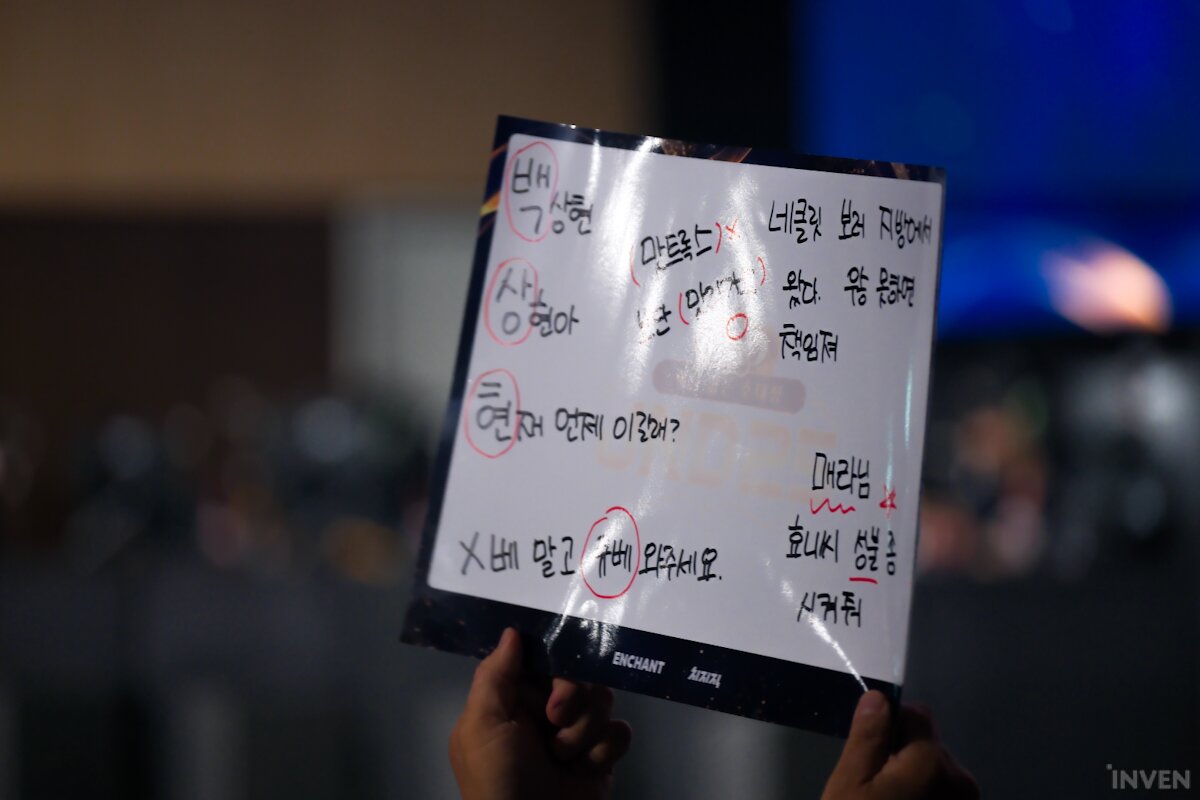 백상현
상현아
현재 언제 이랄래?
X베 말고 큐베 와주세요.
(만트록스) X
네클릿 보러 지방에서
왔다. 우승 못하면
책임져
매라님
효니씨 성불 좀
시켜줘
ENCHANT 치지직
INVEN